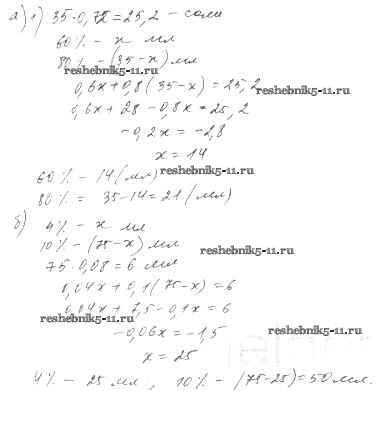 а) 1) 35·0,72=25,2 – соли
60% – x мл
80% – (35-x) мл
reshebnik5-11.ru
0,6x+0,8(35-x)=25,2
reshebnik5-11.ru
0,6x+28-0,8x=25,2
-0,2x=-2,8
x=14
60% – 14(мл)
reshebnik5-11.ru
80% = 35-14=21(мл)
б) 4% – x мл
10% – (75-x) мл
reshebnik5-11.ru
75·0,08=6 мл
0,04x+0,1(75-x)=6
0,04x+7,5-0,1x=6
reshebnik5-11.ru
-0,06x=-1,5
reshebnik5-11.ru
x=25
4% – 25 мл, 10% – (75-25)=50 мл.